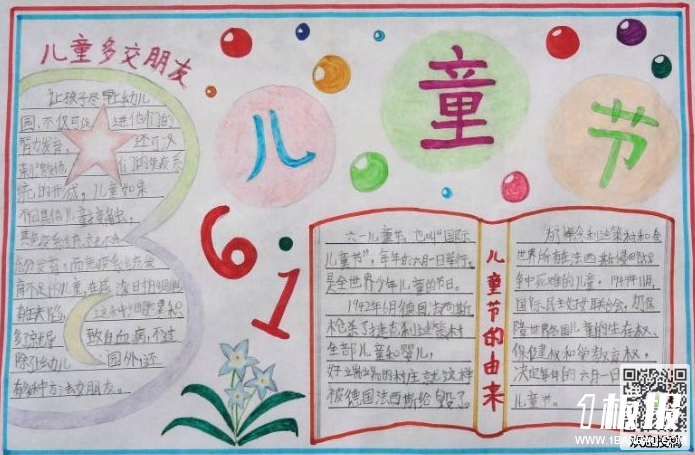 儿童多交朋友
让孩子尽早上幼儿
园,不仅可促进他们的
智力发育,还可以
刺激他们的免疫系
统的形成,儿童如果
不同其他儿童
育不足的儿童,在
致白血病,不过
除了上幼儿园外,还
有多种方法交朋友。
儿童节
6.1
六一儿童节,也叫“国际
儿童节”,每年的六月一日举行,
是全世界少年儿童的节日。
1942年6月德国法西斯
枪杀了捷克利迪策村
全部儿童和婴儿,
好端端的村庄就这样
被德国法西斯给毁了。
儿童节的由来
为了悼念利迪策村和全
世界所有在
争中死难的儿童,1949年11月,
国际民主妇女联合会,为保
障世界各国儿童的生存权、
保健权和受教育权,
决定每年的六月一日
儿童节。
1板报
WWW.1BANBAO.COM
欢迎投稿